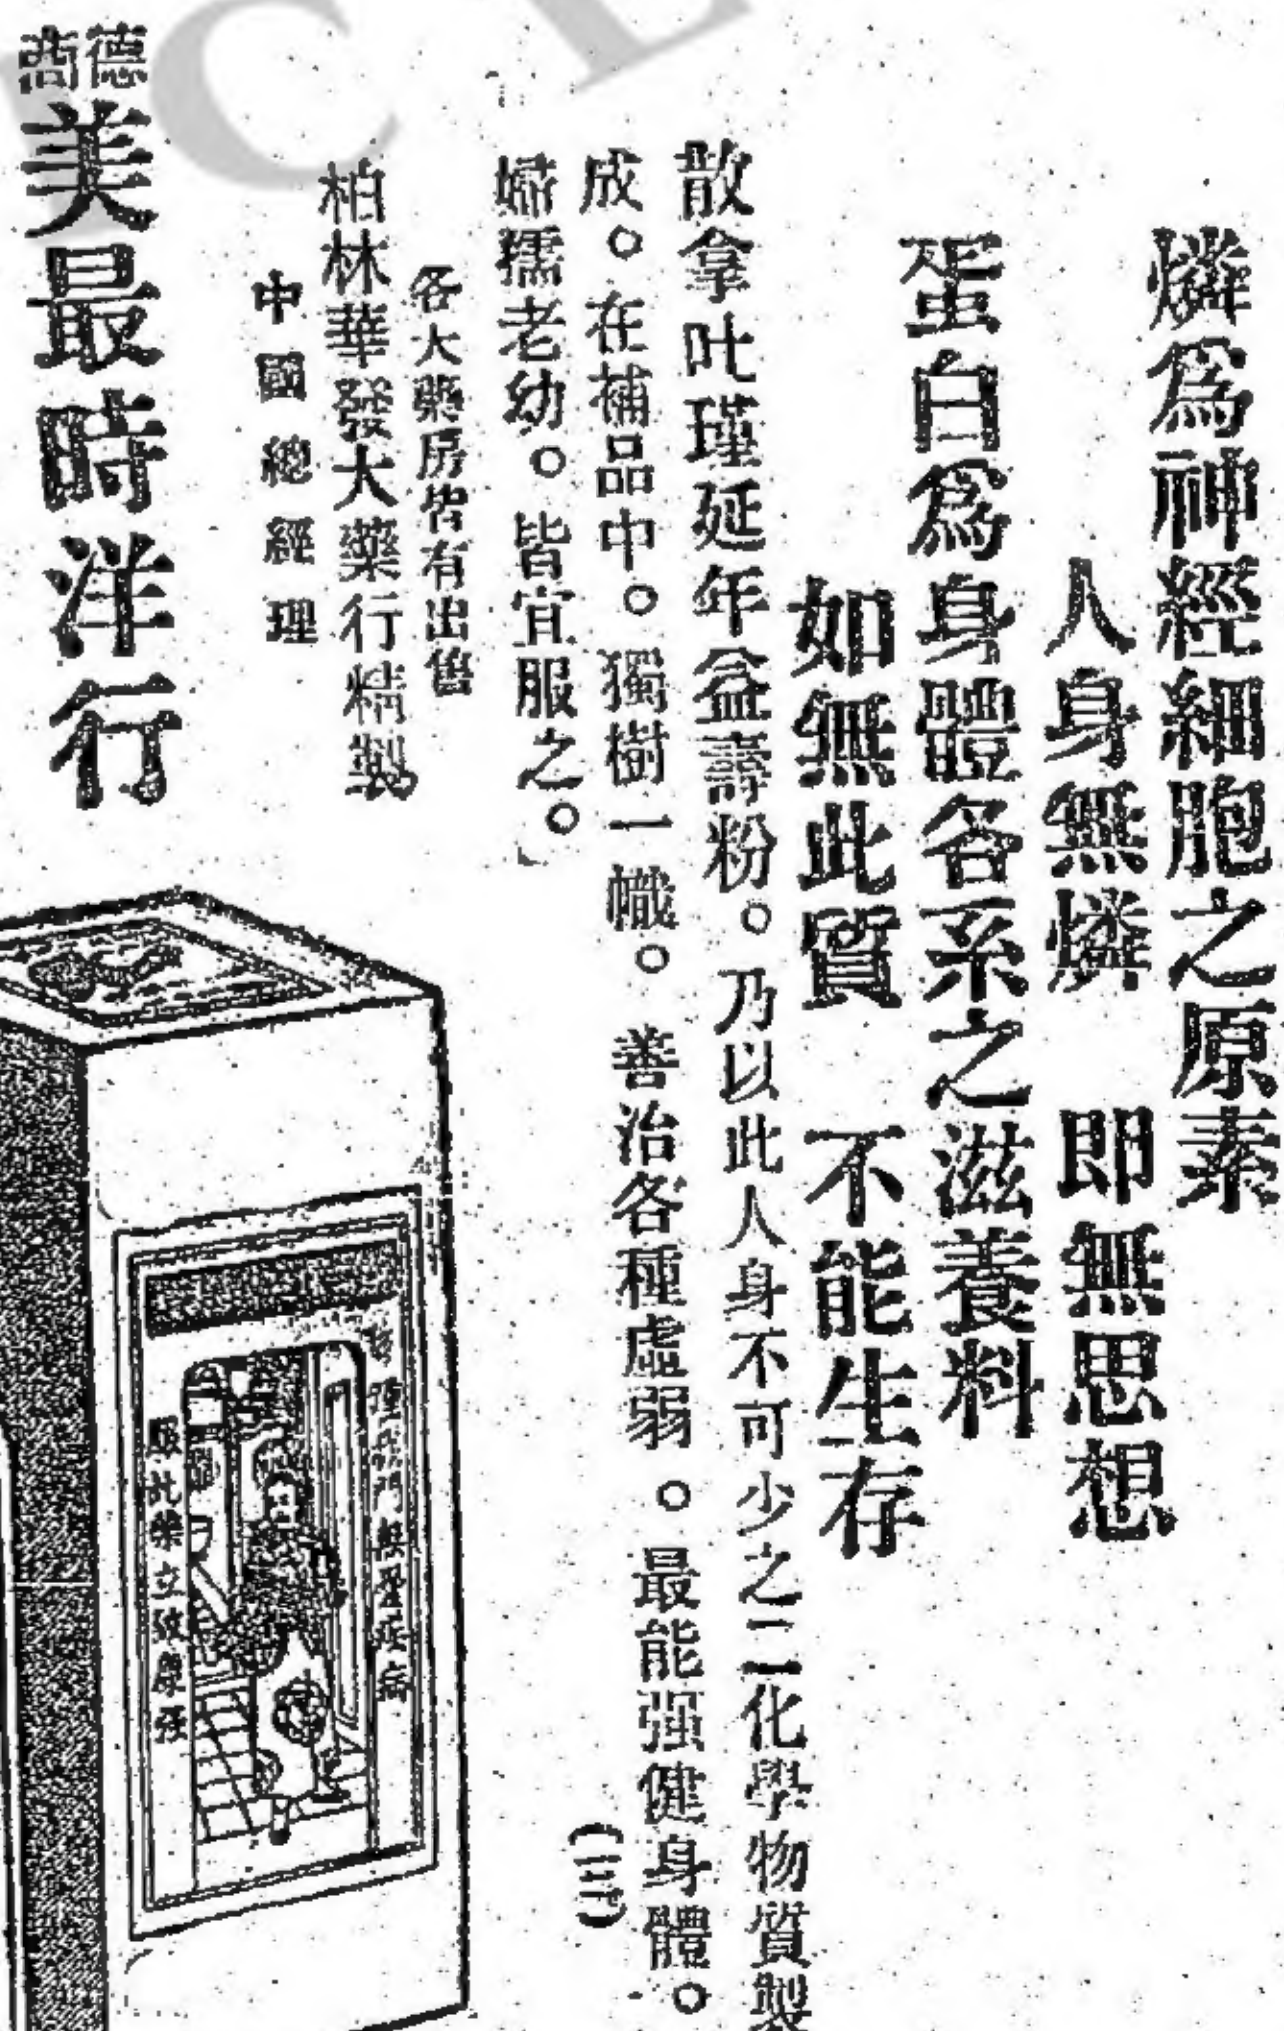 燐爲神經細胞之原素
人身無燐　即無思想
蛋白爲身體各系之滋養料
如無此質　不能生存
散拿吐瑾延年益壽粉。乃以此人身不可少之二化學物質製
成。在補品中。獨樹一幟。善治各種虛弱。最能强健身體。
婦孺老幼。皆宜服之。
各大藥房皆有出售
柏林華發大藥行精製
中國總經理
德商
美最時洋行
服此藥立致康强